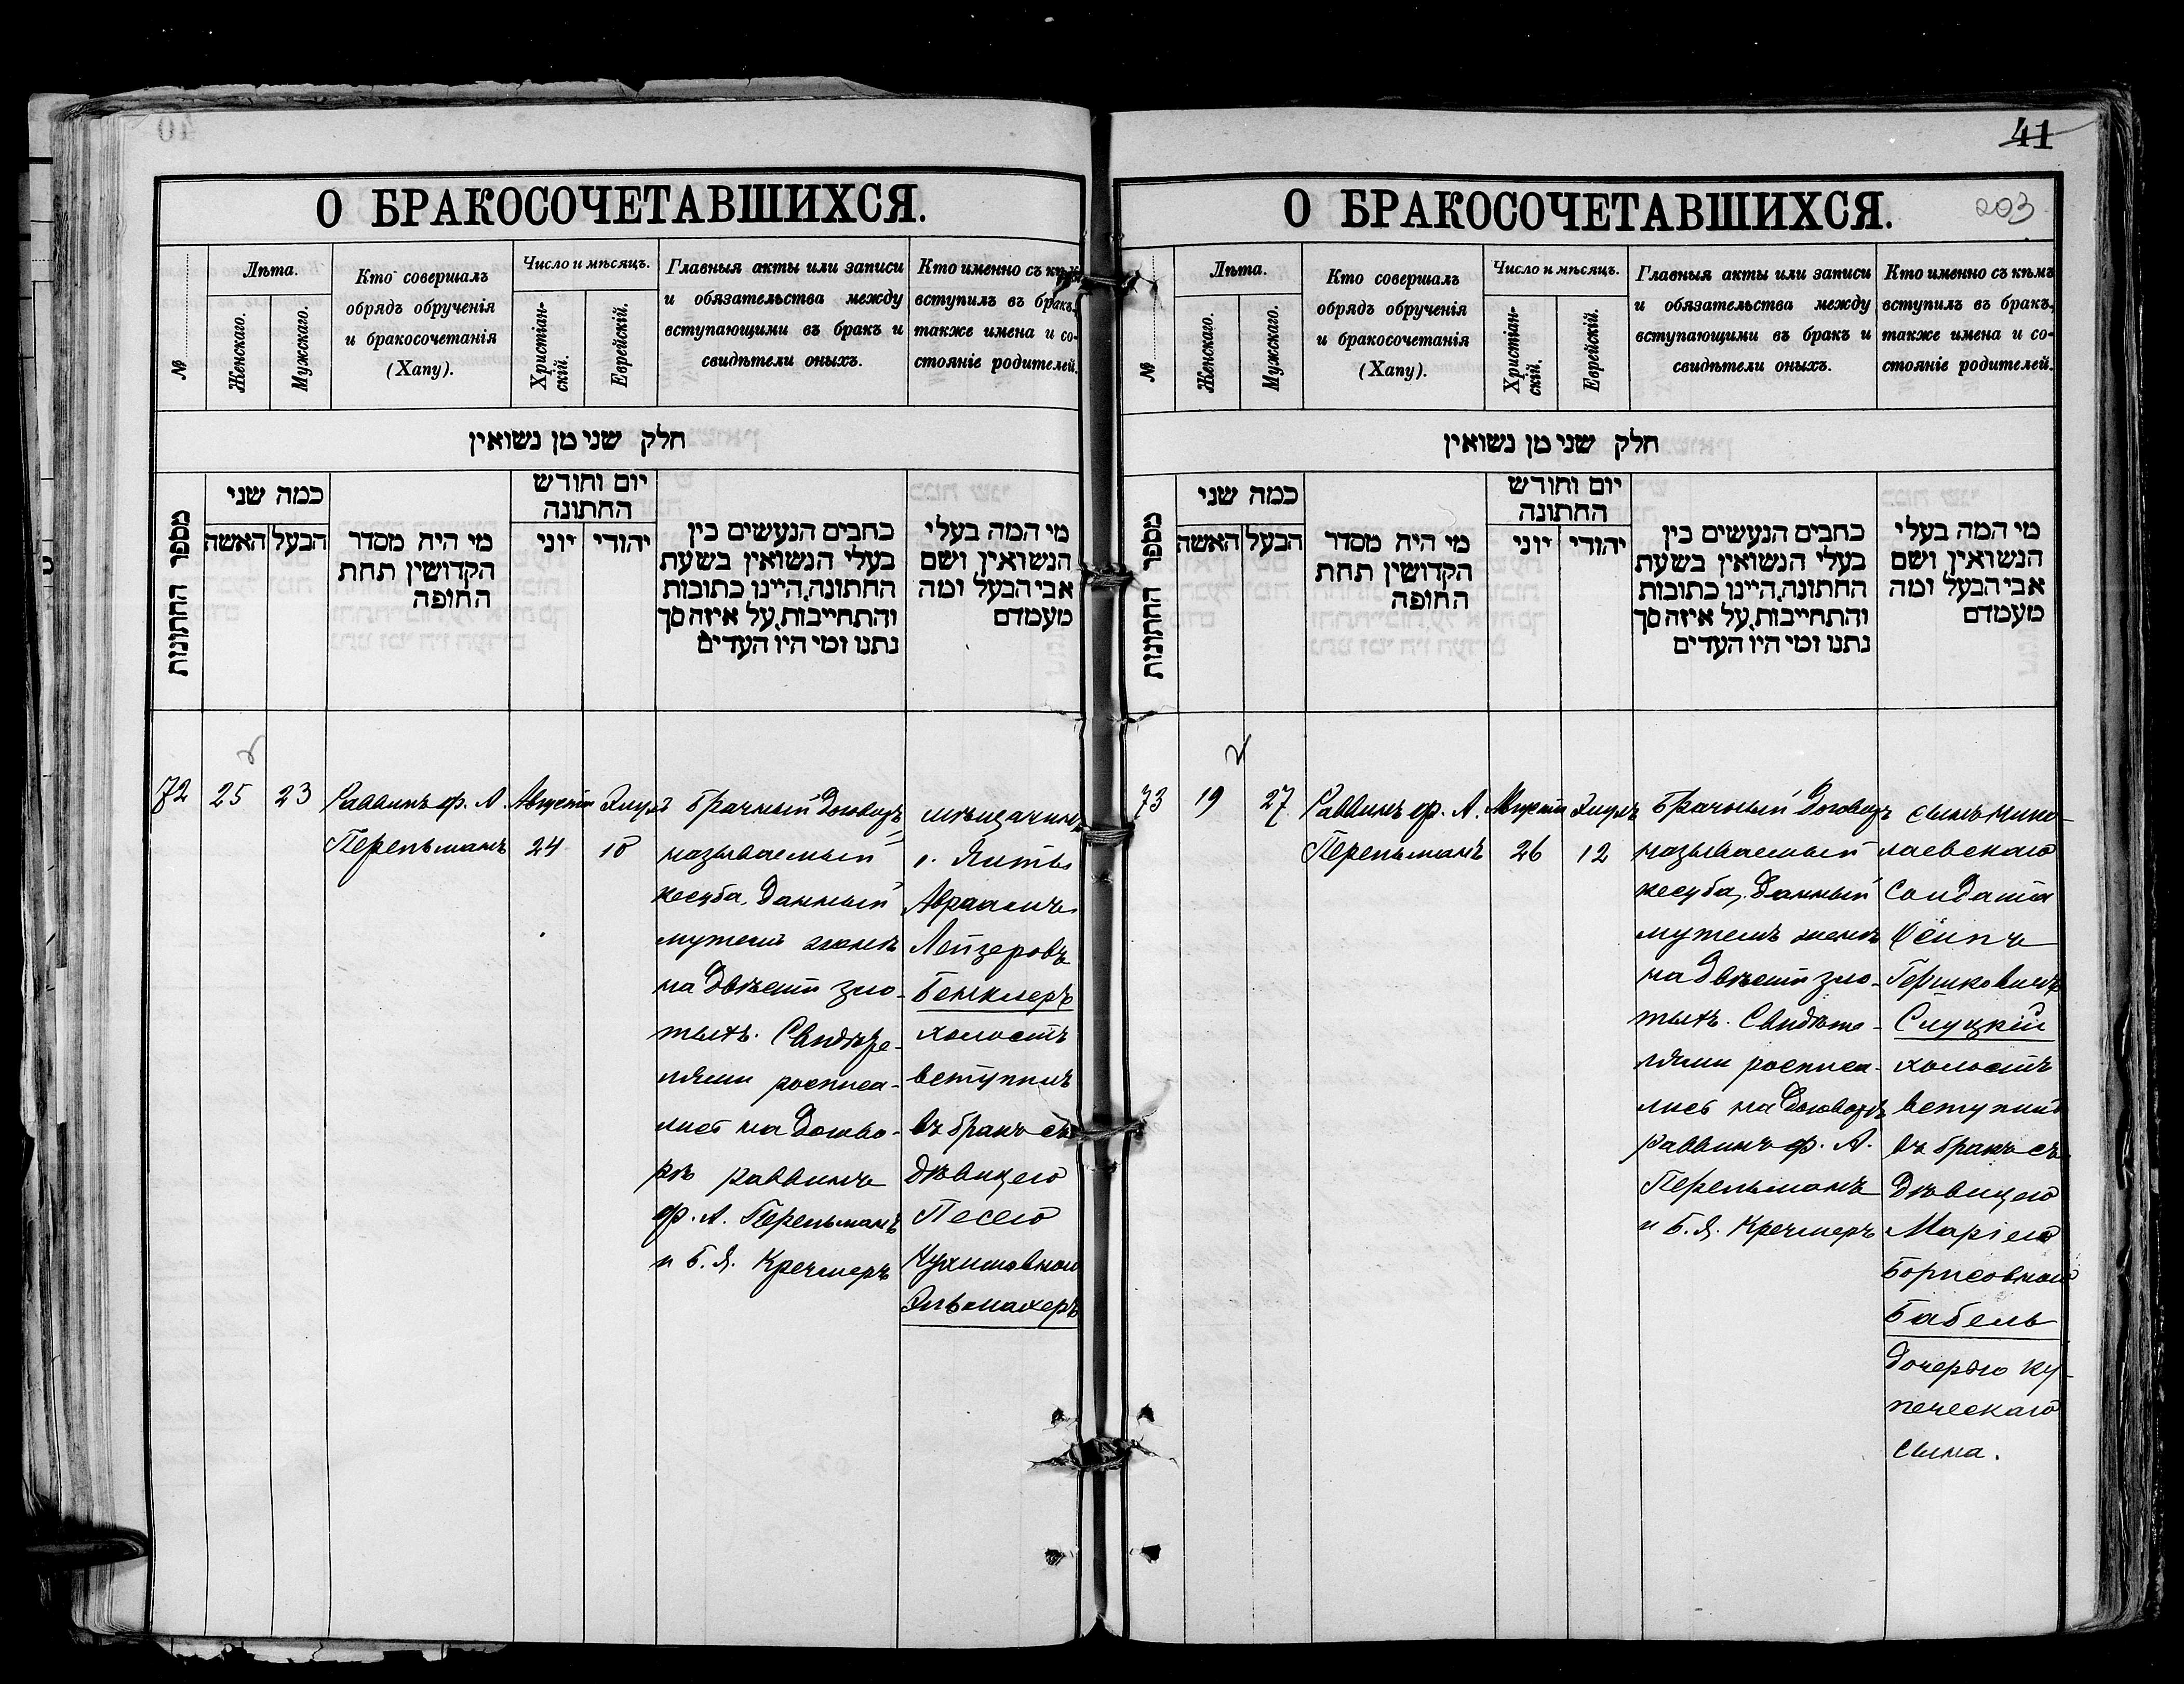 41
203
О БРАКОСОЧЕТАВШИХСЯ.
№
Лѣта.
Женскаго.
Мужскаго.
Кто совершалъ
обрядъ обрученія
и бракосочетанія
(Хапу).
Число и мѣсяцъ.
Христіан-
скій.
Еврейскій.
Главныя акты или записи
и обязательства между
вступающими въ бракъ и
свидѣтели оныхъ.
Кто именно съ кѣмъ
вступилъ въ бракъ,
также имена и со-
стояніе родителей.
חלק שני מן נשואין
מספר החתונות
כמה שני
האשה
הבעל
מי היה מסדר
הקדושין תחת
החופה
יום וחודש
החתונה
יוני
יהודי
כתבים הנעשים בין
בעלי הנשואין בשעת
החתונה, היינו כתובות
והתחייבות, על איזה סך
נתנו ומי היו העדים
מי המה בעלי
הנשואין, ושם
אבי הבעל ומה
מעמדם
72
25
23
Раввинъ ф. А.
Перельманъ
Августа
24
Элулъ
10
Брачный договоръ
называемый
кесуба, данный
мужемъ женѣ
на двѣсти зло-
тыхъ. Свидѣте-
лями росписа-
лись на догово-
рѣ раввинъ
ф. А. Перельманъ
и Б. Я. Кречмеръ
мѣщанинъ
Авраамъ
Лейзеровъ
холостъ
вступилъ
въ бракъ съ
дѣвицею
Песею
Эльмахеръ
О БРАКОСОЧЕТАВШИХСЯ.
№
Лѣта.
Женскаго.
Мужскаго.
Кто совершалъ
обрядъ обрученія
и бракосочетанія
(Хапу).
Число и мѣсяцъ.
Христіан-
скій.
Еврейскій.
Главныя акты или записи
и обязательства между
вступающими въ бракъ и
свидѣтели оныхъ.
Кто именно съ кѣмъ
вступилъ въ бракъ,
также имена и со-
стояніе родителей.
חלק שני מן נשואין
מספר החתונות
כמה שני
האשה
הבעל
מי היה מסדר
הקדושין תחת
החופה
יום וחודש
החתונה
יוני
יהודי
כתבים הנעשים בין
בעלי הנשואין בשעת
החתונה, היינו כתובות
והתחייבות, על איזה סך
נתנו ומי היו העדים
מי המה בעלי
הנשואין, ושם
אבי הבעל ומה
מעמדם
73
19
27
Раввинъ ф. А.
Перельманъ
Августа
26
Элулъ
12
Брачный договоръ
называемый
кесуба, данный
мужемъ женѣ
на двѣсти зло-
тыхъ. Свидѣте-
лями росписа-
лись на договорѣ
раввинъ ф. А.
Перельманъ
и Б. Я. Кречмеръ
сынъ нико-
лаевскаго
солдата
Осипъ
Гершковичъ
Слуцкій
холостъ
вступилъ
въ бракъ съ
дѣвицею
Маріею
Борисовною
Бабель
дочерью ку-
печескаго
сына.